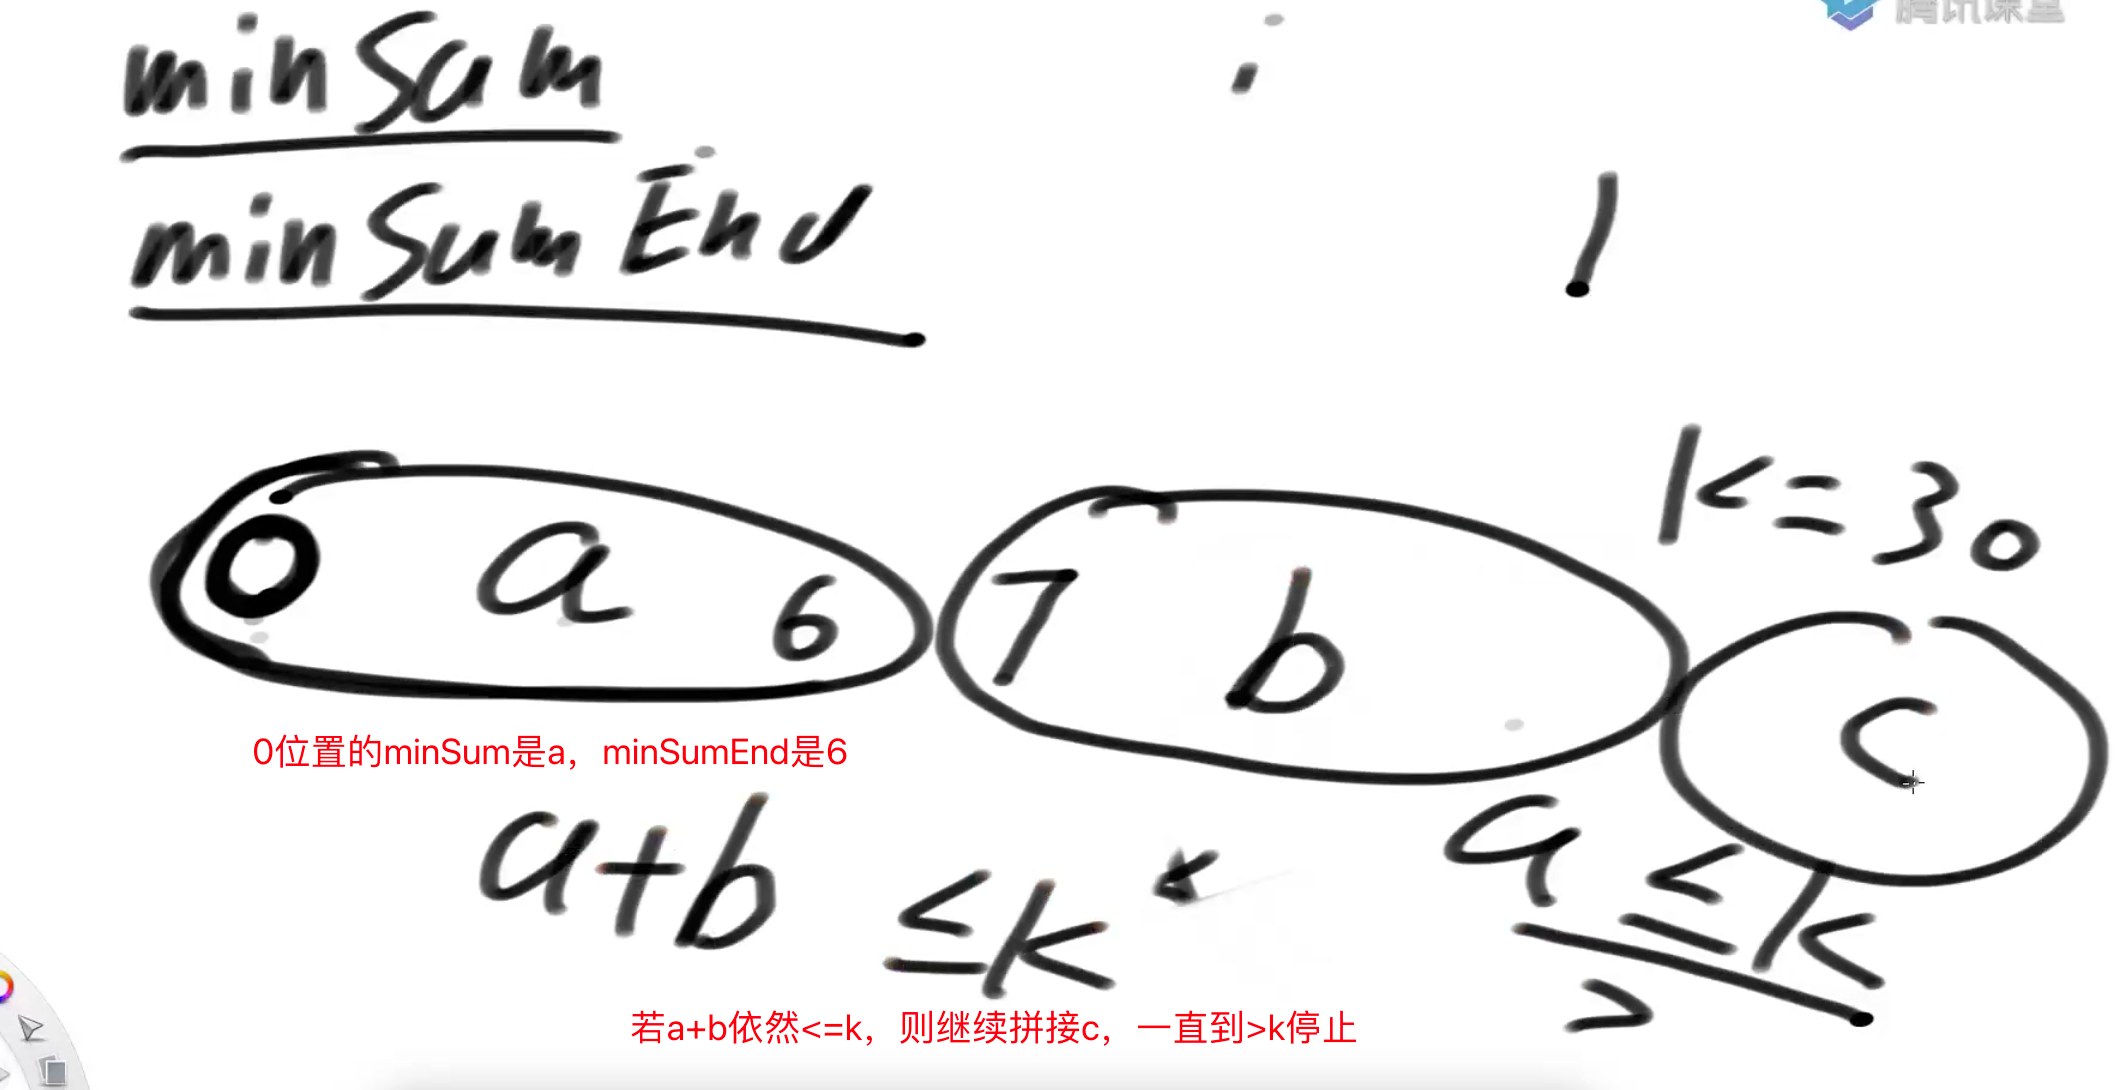 腾讯课堂
minSum
minSumEnd
K=30
0 a 6
7 b
c
0位置的minSum是a，minSumEnd是6
a+b ≤K
a ≤K
>
若a+b依然<=k，则继续拼接c，一直到>k停止